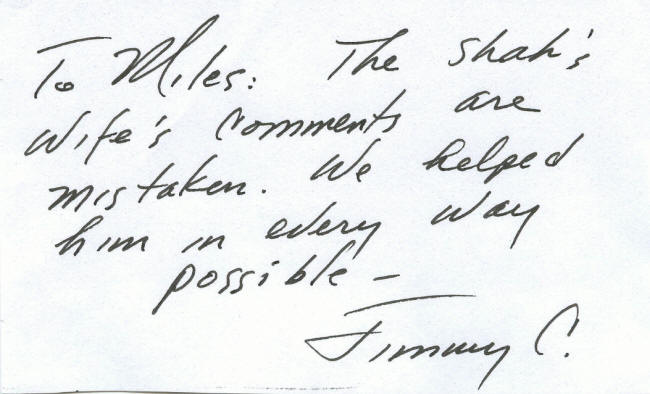 To Miles: The Shah's
wife's comments are
mistaken. We helped
him in every way
possible –
Jimmy C.